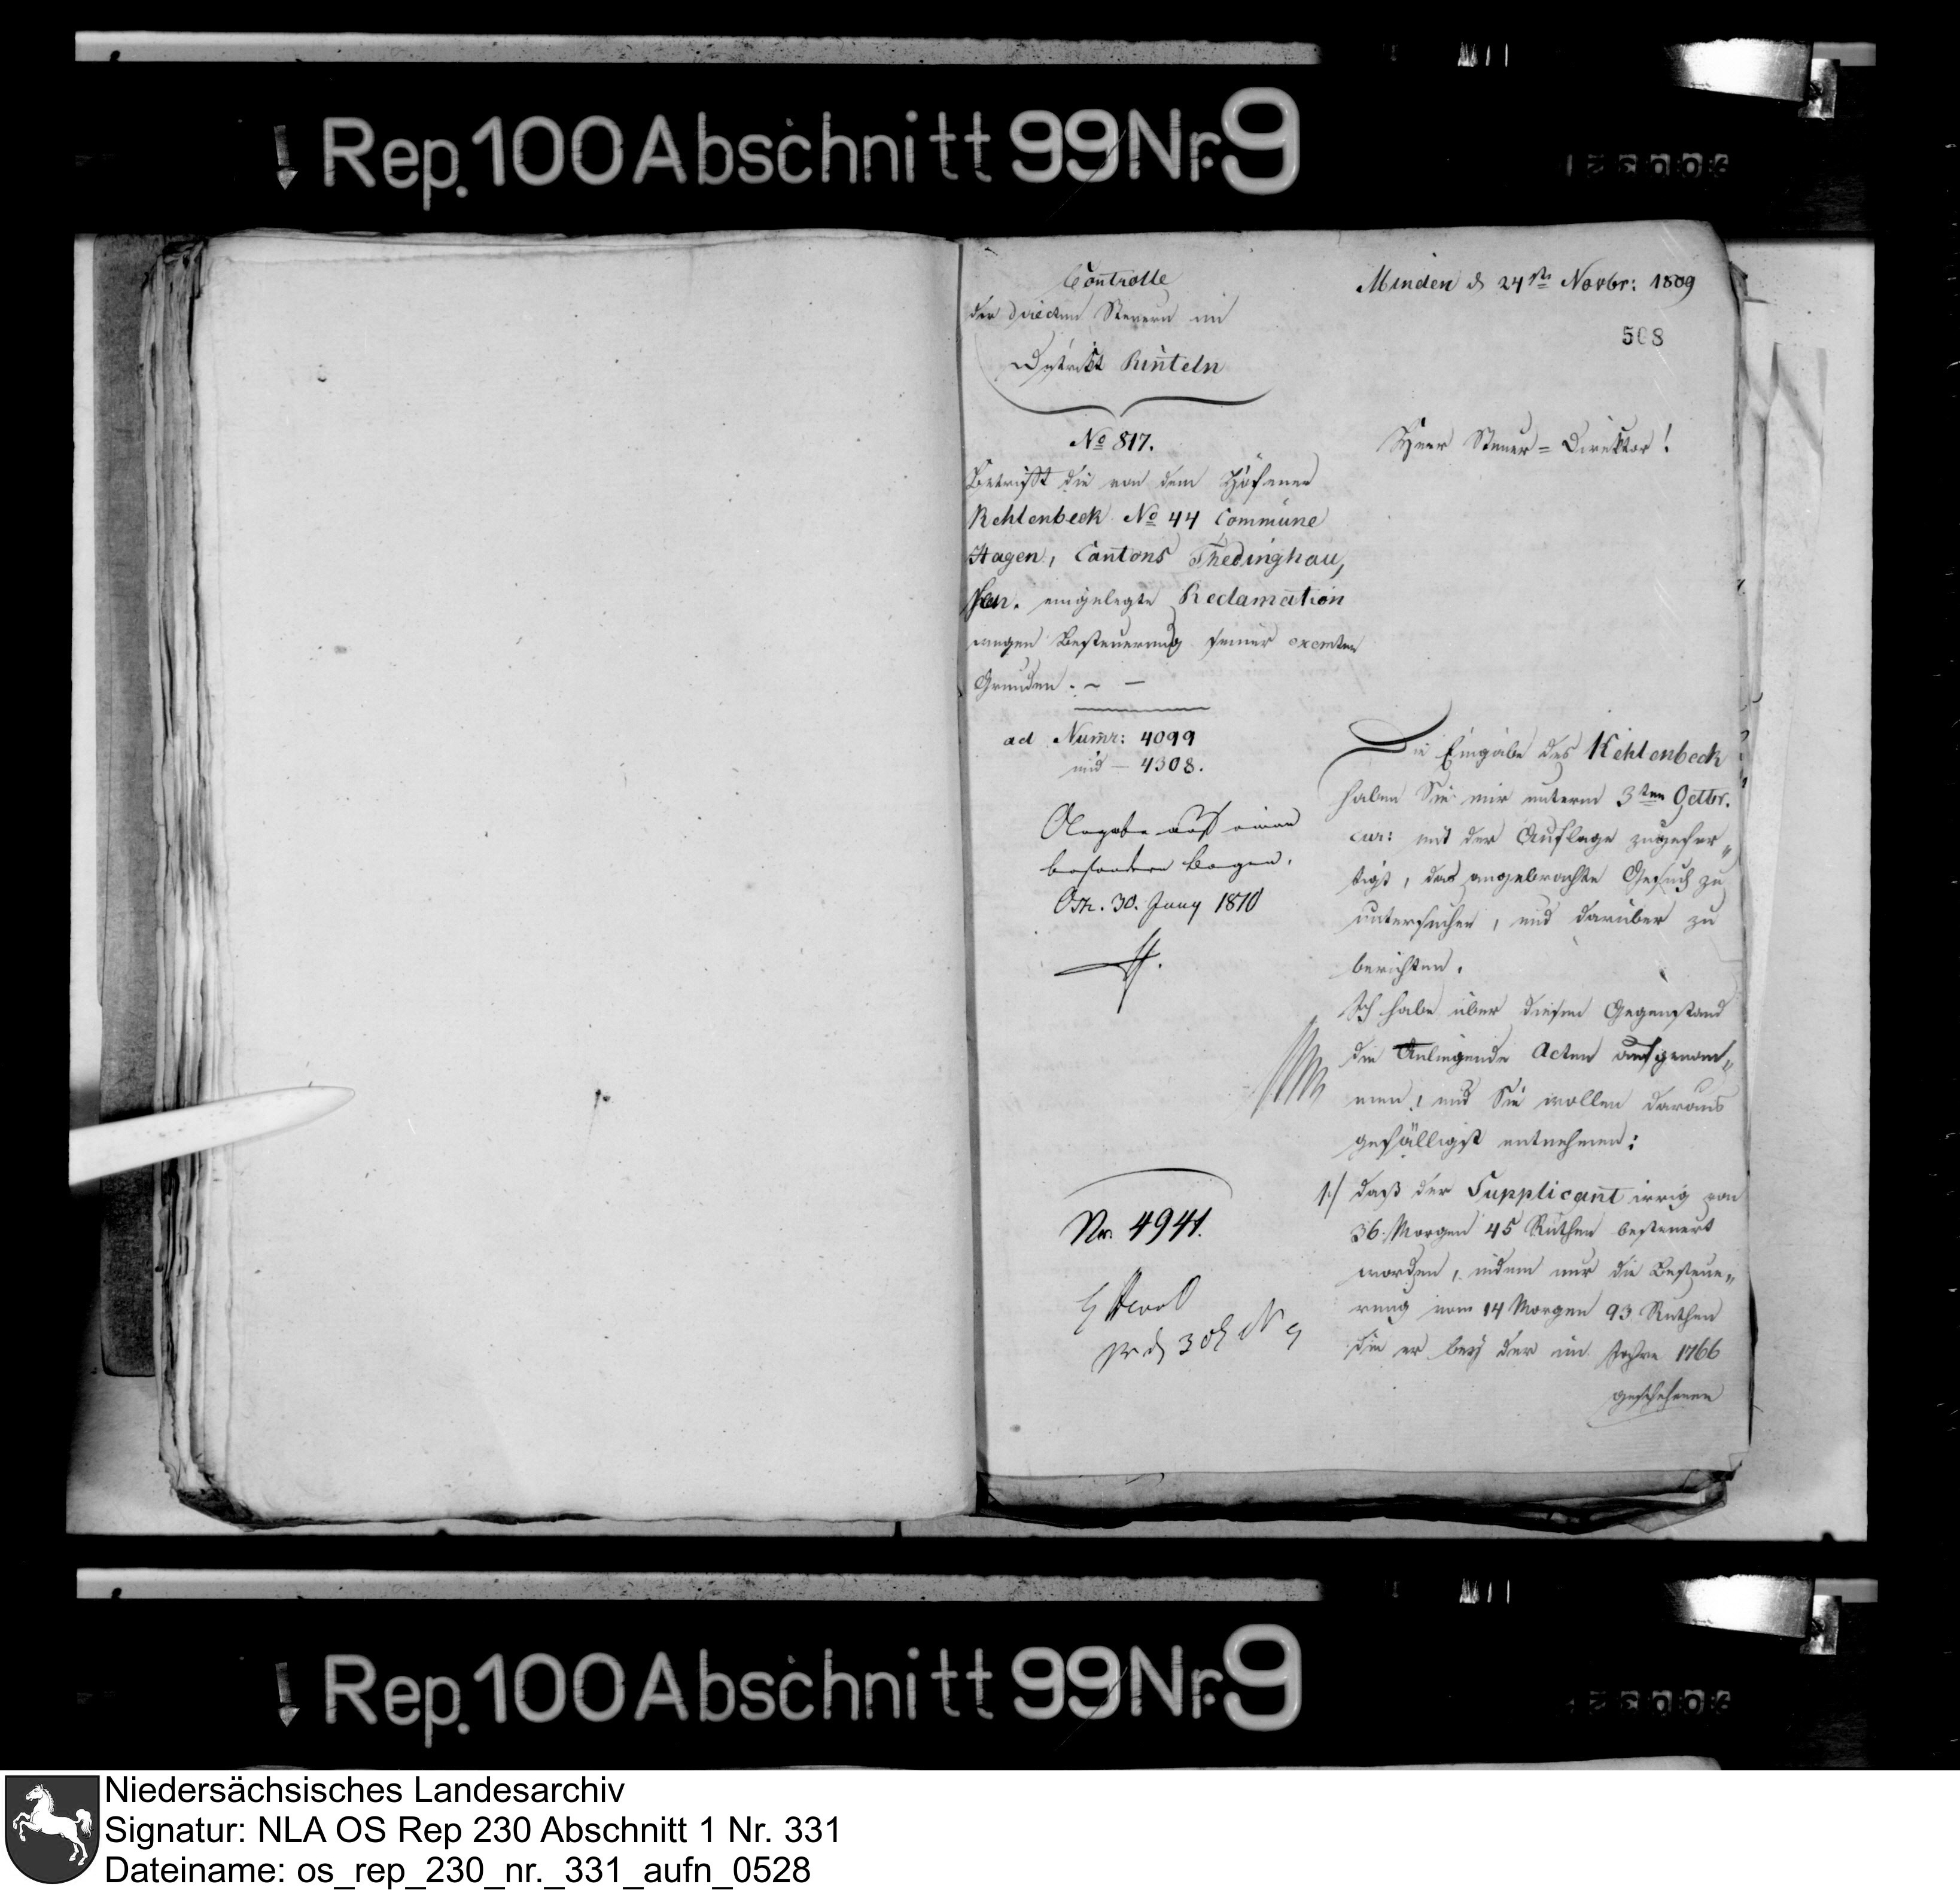 Rep. 100 Abschnitt 99 Nr. 9
Controlle
der directen Steuern im
District Rinteln
No 817.
Betrifft die von dem Höfener
Kehlenbeck No 44 Commune
Hagen, Cantons Thedinghau,
sen. eingelegte Reclamation
wegen Besteuerung seiner exemten
Grunden. ~ —
ad Numr: 4099
und — 4308.
Abgabe auf einen
besondern Bogen.
Osn. 30. Juny 1810
Nr. 4941.
Minden d 24ste Novbr: 1809
508
Herr Steuer=Direktor!
Die Eingabe des Kehlenbeck
haben Sie mir unterm 3ten Octbr.
cur: mit der Auflage zugefer„
tigt, das angebrachte Gesuch zu
untersuchen, und darüber zu
berichten.
Ich habe über diesen Gegenstand
die Anliegende Acten aufgenom„
men, und Sie wollen daraus
gefälligst entnehmen:
1/ daß der Supplicant irrig von
36. Morgen 45 Ruthen besteuert
worden, indem nur die Besteue„
rung vom 14 Morgen 93 Ruthen
die er bey der im Jahre 1766
geschehenen
Rep. 100 Abschnitt 99 Nr. 9
Niedersächsisches Landesarchiv
Signatur: NLA OS Rep 230 Abschnitt 1 Nr. 331
Dateiname: os_rep_230_nr._331_aufn_0528